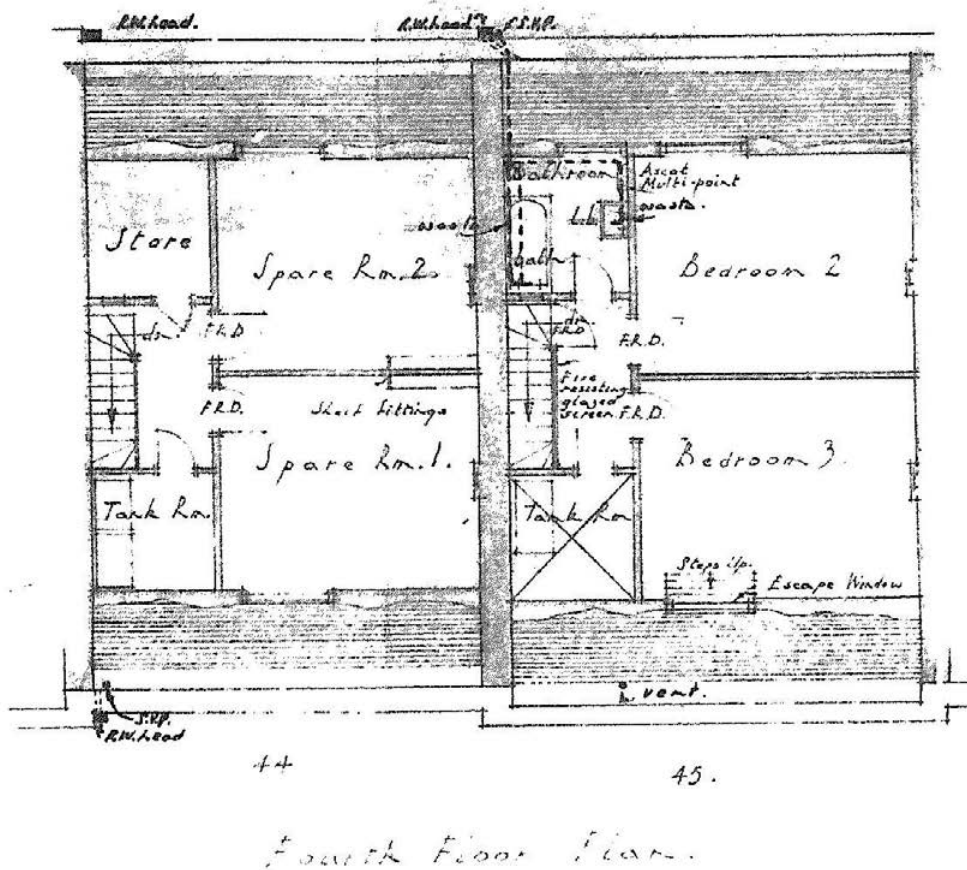 R.W.head.
R.W.head
F.S.V.P.
Bathroom
Ascot
Multi-point
waste.
waste
L.b.
bath
Store
Spare Rm.2
Bedroom 2
dn.
F.R.D.
dn.
F.R.D.
F.R.D.
Fire
resisting
glazed
screen
F.R.D.
Shelf fittings
F.R.D.
Spare Rm.1.
Bedroom 3
Tank Rm.
Tank Rm
Steps up.
Escape Window
vent.
S.V.P.
R.W.head
44
45.
Fourth Floor Plan.